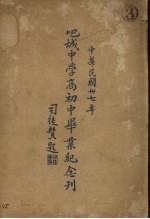 中華民國卅七年
吧城中學高初中畢業紀念刊
司徒贊題